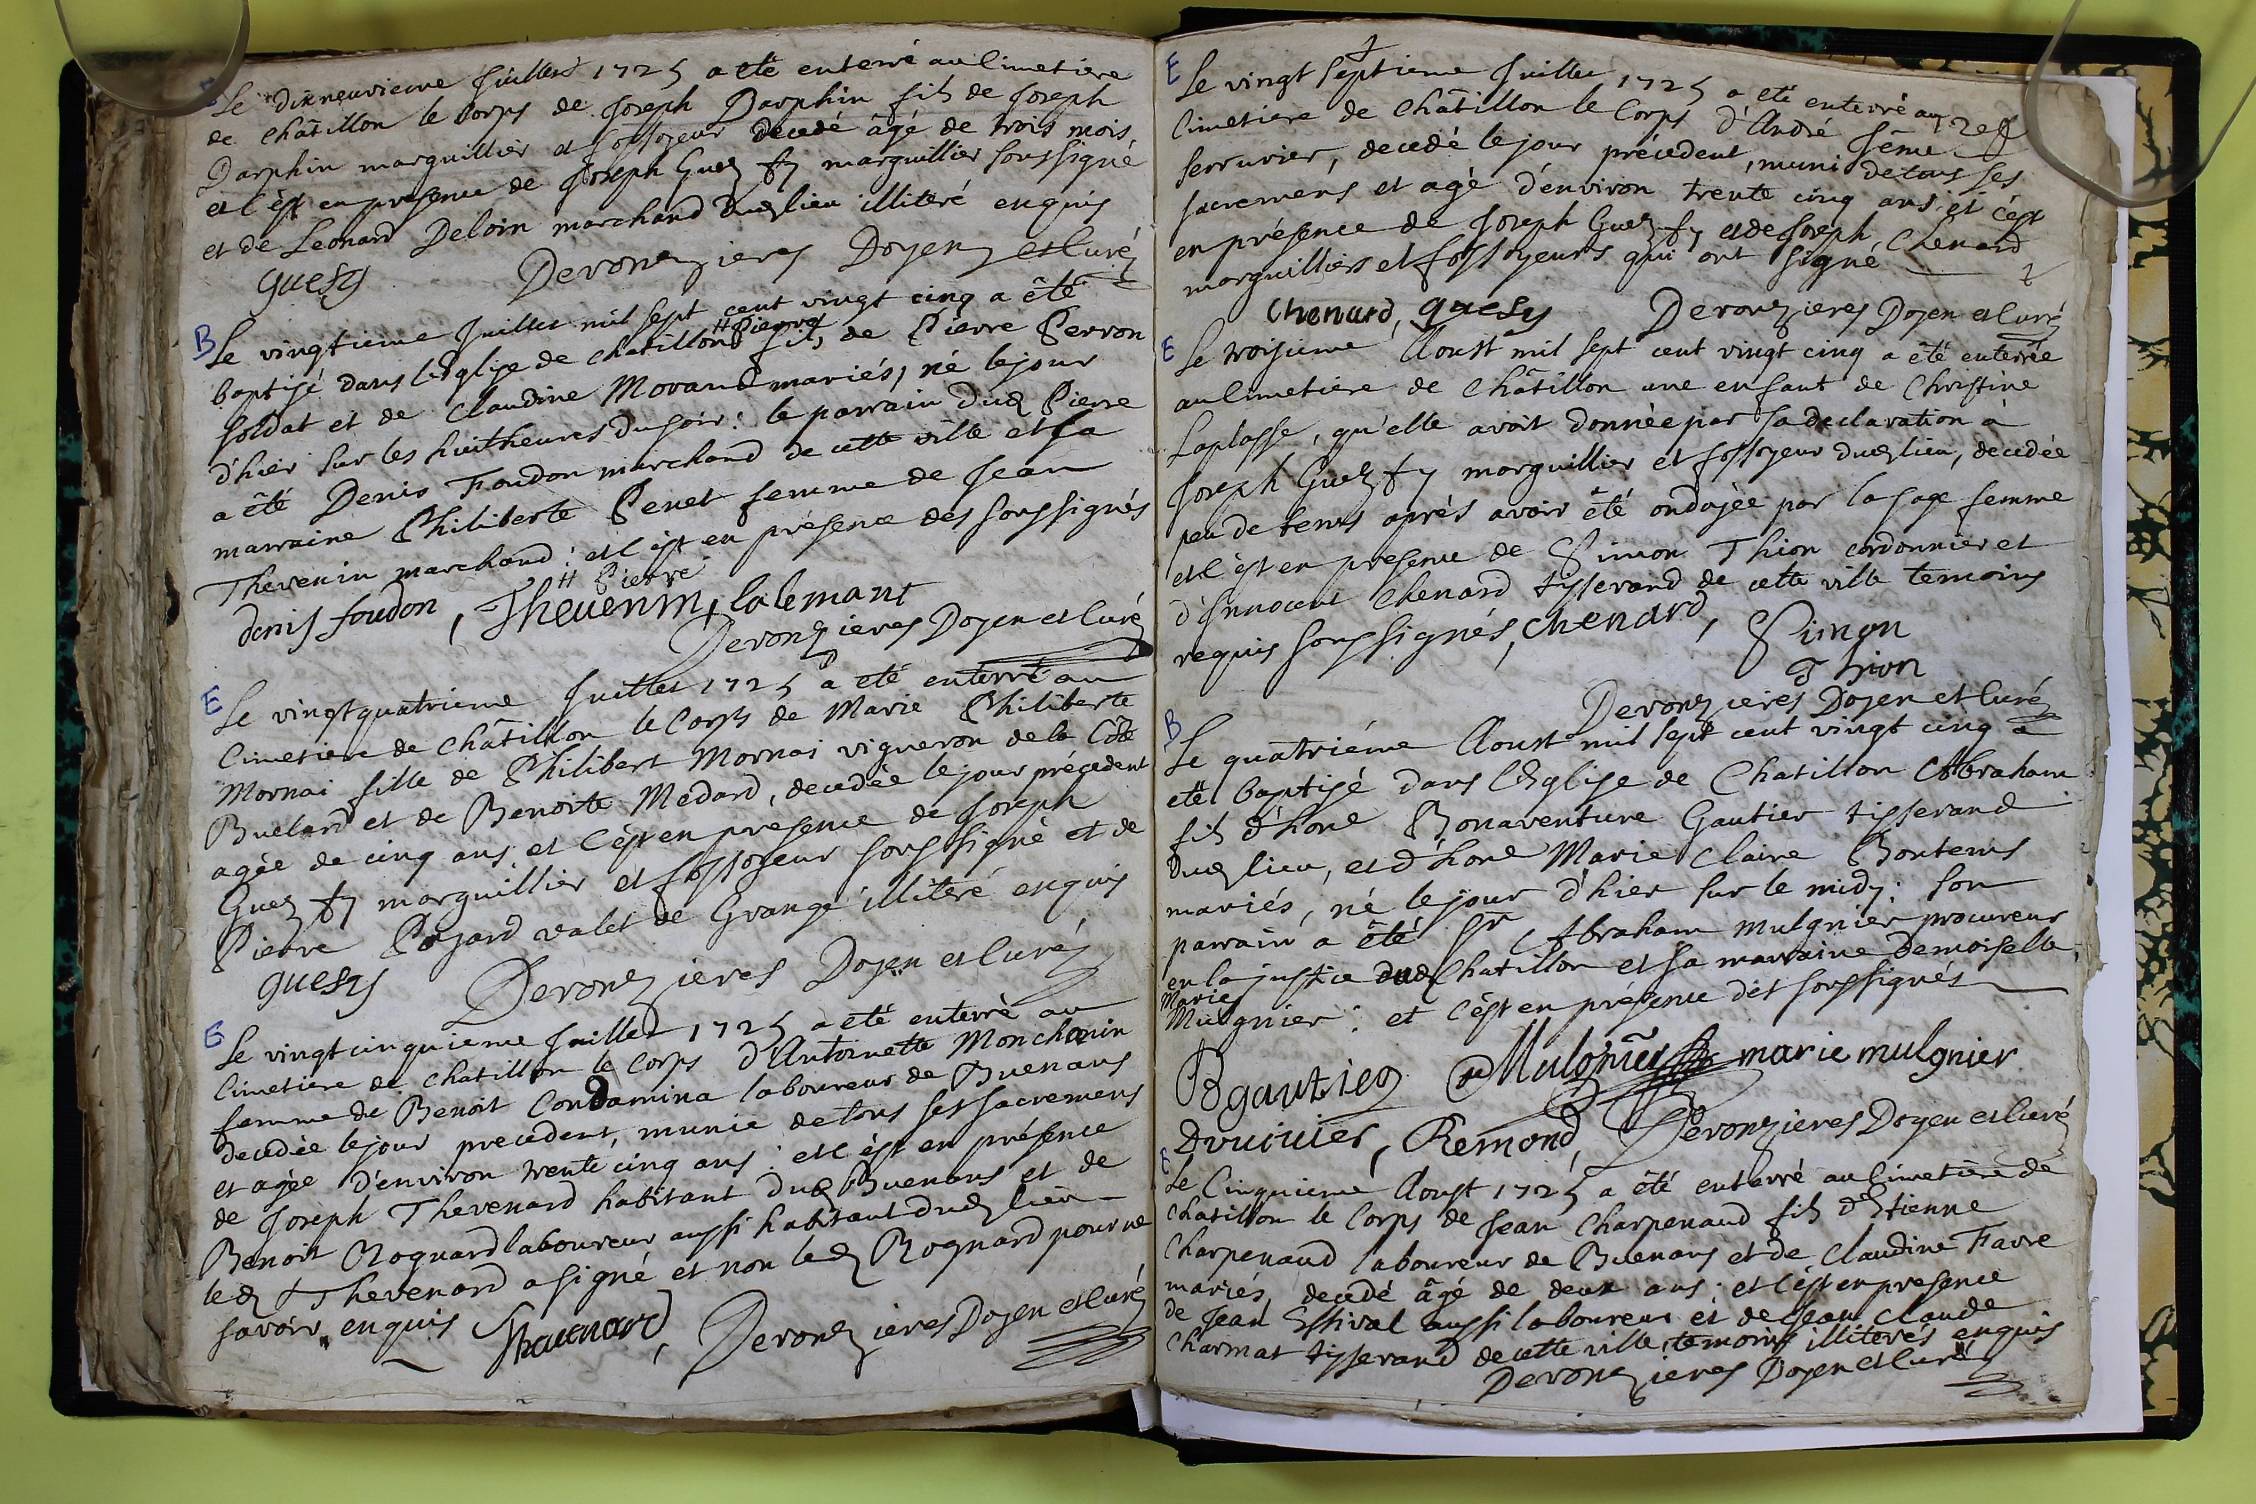 Le dixneuvieme Juillet 1725 a eté enterré au Cimetiere
de Châtillon le Corps de Joseph Darphin fils de Joseph
Darphin marguillier et fossoyeur decedé âgé de trois mois
et c'est en presence de Joseph Guez marguillier soussigné
et de Leonard Deloin marchand dud lieu illiteré enquis
guesy Deronzieres Doyen et Curé
B
Le vingtieme Juillet mil sept cent vingt cinq a êté
baptisé dans l'Eglise de Chatillon # Pierre fils de Pierre Perron
soldat et de Claudine Morand mariés, né le jour
d'hier sur les huit heures du soir: le parrain dud Pierre
a êté Denis Foudon marchand de cette ville et sa
marraine Philiberte Penet femme de Jean
Thevenin marchand: et c'est en présence des soussignés
# Pierre
denis foudon, Thevenin, lalemant
Deronzieres Doyen et Curé
E
Le vingt quatrieme Juillet 1725 a eté enterré au
Cimetiere de Châtillon le Corps de Marie Philiberte
Mornai fille de Philibert Mornai vigneron de la Côte
Buelard et de Benoite Médard, decedée le jour précedent
agée de cinq ans, et c'est en presence de Joseph
Guez marguillier et fossoyeur soussigné et de
Pierre Pojard valet de Grange illiteré enquis
guesy Deronzieres Doyen et Curé
E
Le vingt cinquieme Juillet 1725 a eté enterré au
Cimetiere de Chatillon le Corps d'Antoinette Monchanin
femme de Benoit Condamina laboureur de Buenans
decedée le jour precedent, munie de tous ses sacremens
et agée d'environ trente cinq ans: et c'est en présence
de Joseph Thevenard habitant dud Buenans et de
Benoit Rognard laboureur aussi habitant dud lieu
led Thevenard a signé et non led Rognard pour ne
savoir, enquis Thevenard, Deronzieres Doyen et Curé
E
Le vingt septieme Juillet 1725 a eté enterré au
Cimetiere de Châtillon le Corps d'André Sême
serrurier, decedé le jour précedent, muni de tous ses
sacremens et agé d'environ trente cinq ans, et c'est
en présence de Joseph Guez et de Joseph Chenard
marguilliers et fossoyeurs qui ont signé
Chenard, guesy Deronzieres Doyen et Curé
E
Le troisieme Aoust mil sept cent vingt cinq a êté enterrée
au Cimetiere de Châtillon une enfant de Christine
Laplasse, qu'elle avoit donnée par sa declaration à
Joseph Guez marguillier et fossoyeur dud lieu, decedée
peu de tems aprés avoir êté ondoyée par la sage femme
et c'est en presence de Simon Thion cordonnier et
d'Innocent Chenard tisserand de cette ville temoins
requis soussignés, chenard, Simon
Thion
Deronzieres Doyen et Curé
B
Le quatriéme Aoust mil sept cent vingt cinq a
eté baptisé dans l'Eglise de Chatillon Abraham
fils d'hone Bonaventure Gautier tisserand
dud lieu, et d'hone Marie Claire Bontems
mariés, né le jour d'hier sur le midy: son
parrain a êté Sr Abraham Mulgnier procureur
en la justice dud Chatillon et sa marraine Demoiselle
Marie
Mulgnier: et c'est en présence des soussignés
Bgautier Mulgnier marie mulgnier
Druivier, Remond, Deronzieres Doyen et Curé
E
Le Cinquieme Aoust 1725 a êté enterré au Cimetiere de
Chatillon le Corps de Jean Charpenaud fils d'Etienne
Charpenaud laboureur de Buenans et de Claudine Favre
mariés, decedé âgé de deux ans; et c'est en presence
de Jean Essival aussi laboureur et de Jean Claude
Charmat tisserand de cette ville, temoins illiterés enquis
Deronzieres Doyen et Curé